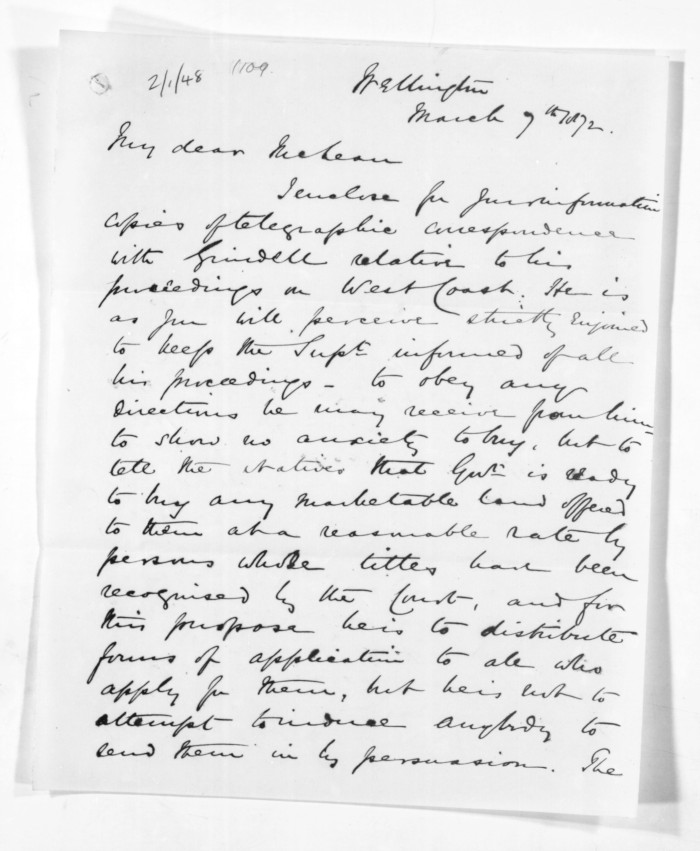 2/1/48 1109
Wellington
March 7th 1872.
My dear McLean
I enclose for your information
copies of telegraphic correspondence
with Grindell relative to his
proceedings on West Coast. He is
as you will perceive strictly enjoined
to keep the Supt. informed of all
his proceedings - to obey any
directions he may receive from him -
to show no anxiety to buy, but to
tell the Natives that Govt. is ready
to buy any marketable land offered
to them at a reasonable rate by
persons whose titles have been
recognised by the Court, and for
this purpose he is to distribute
forms of application to all who
apply for them, but he is not to
attempt to induce anybody to
send them in by persuasion. The